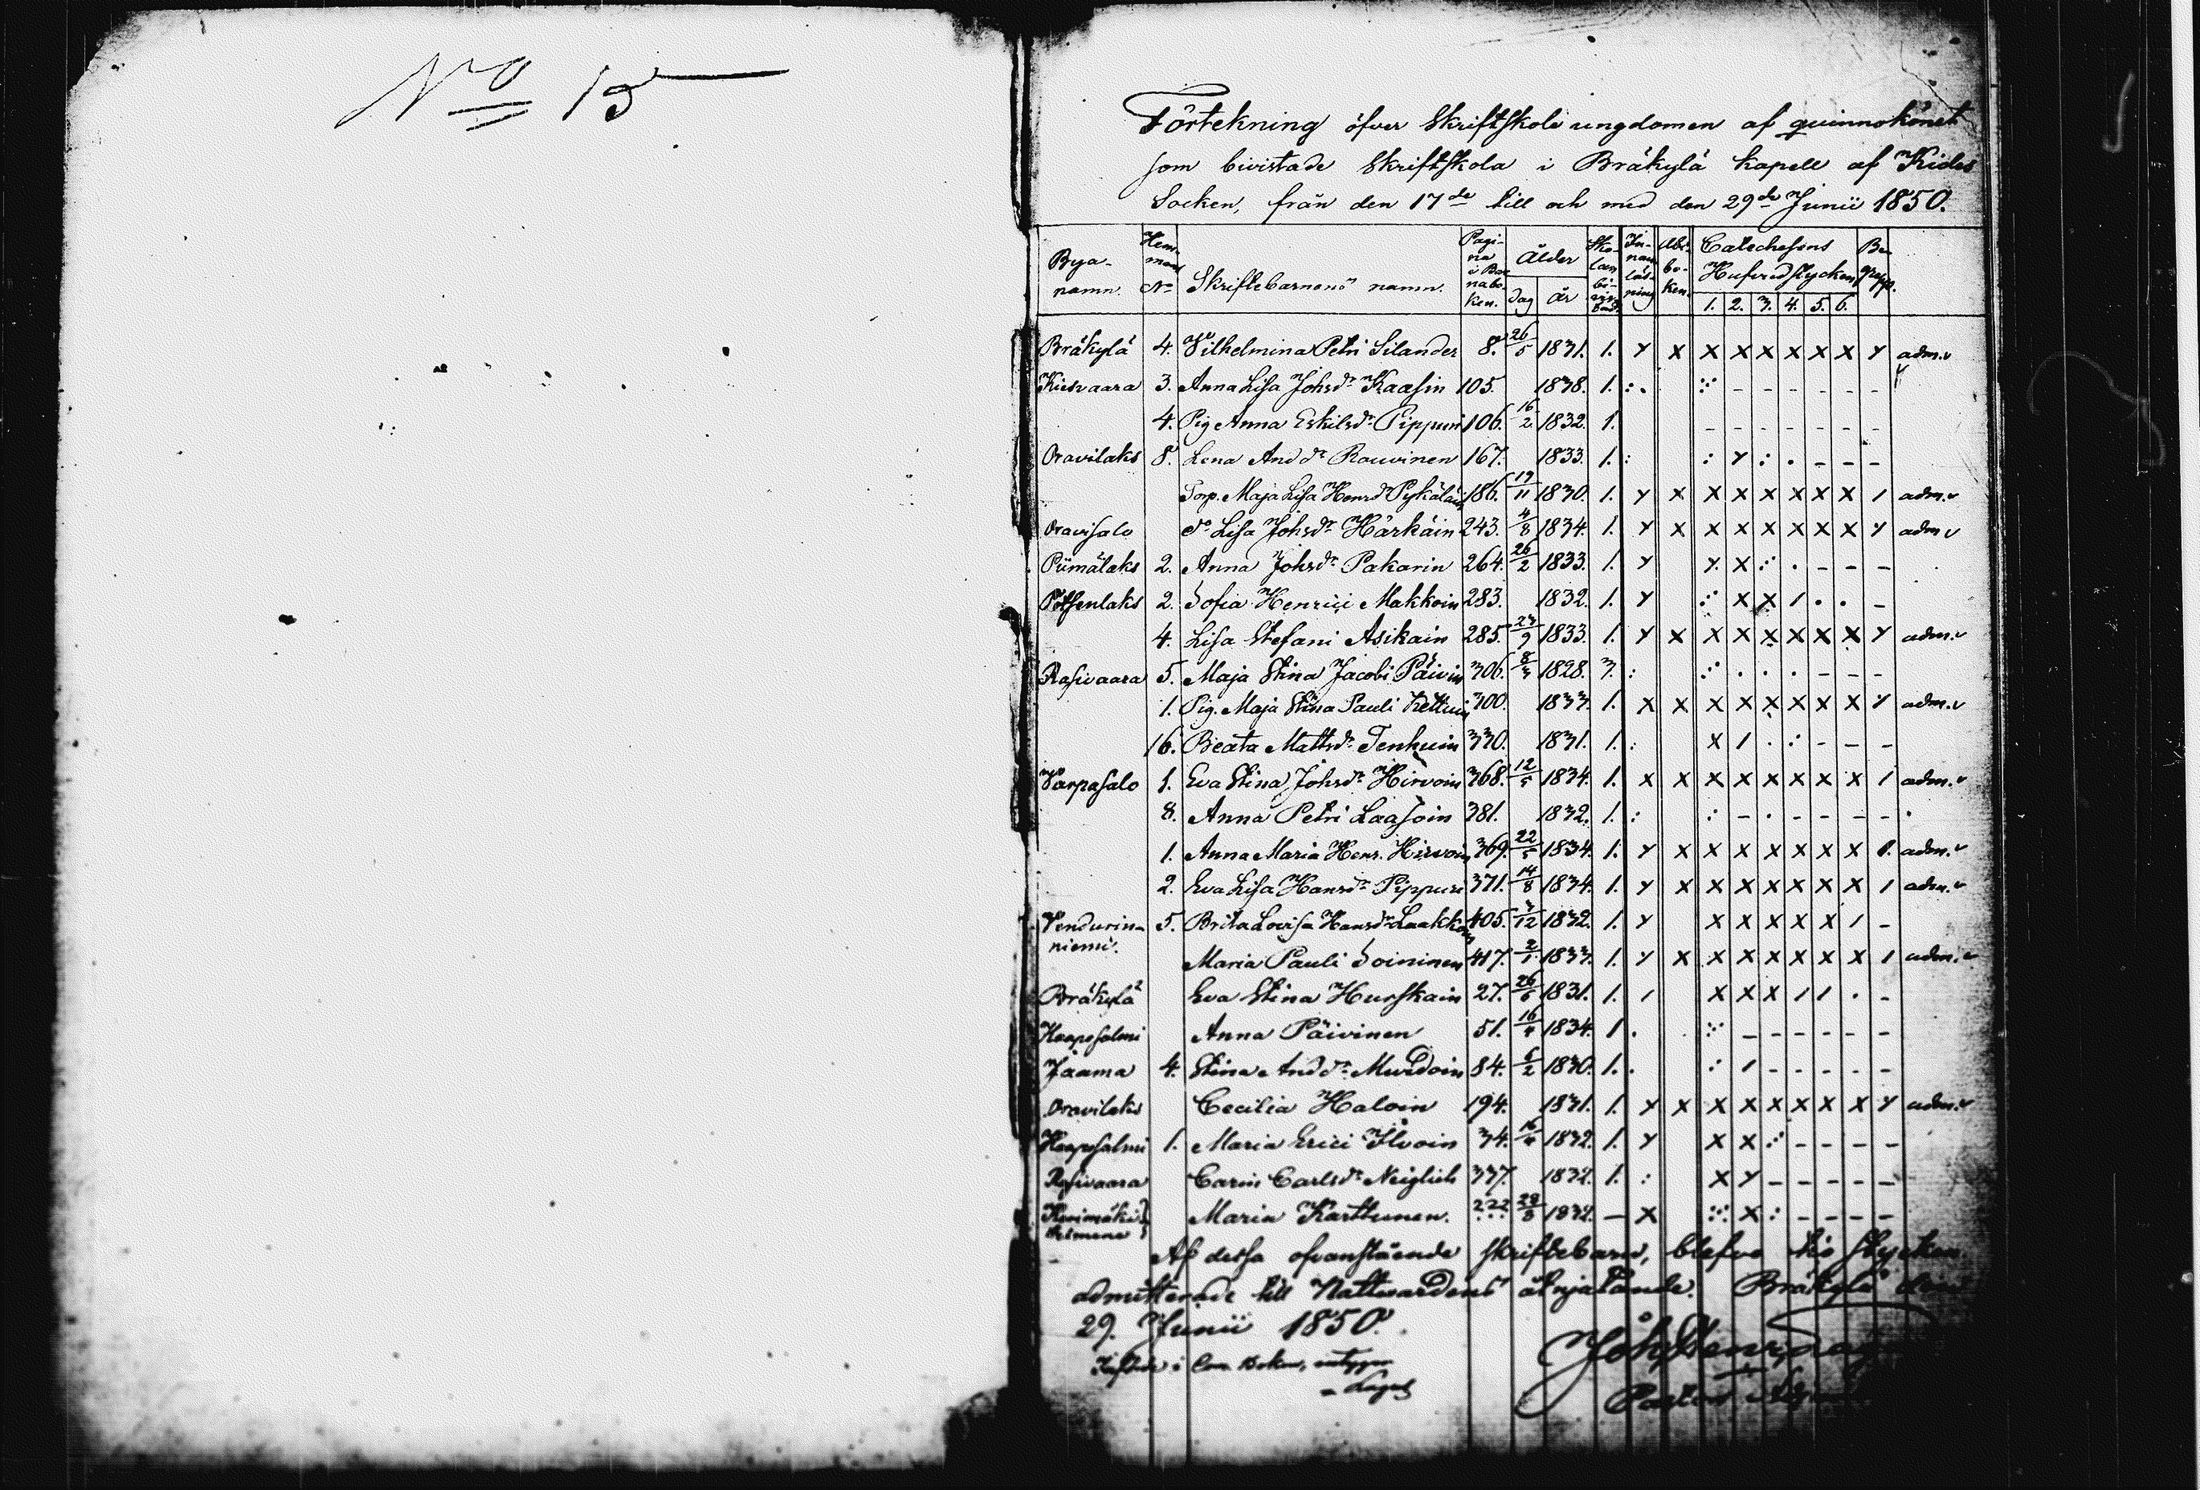 No 15
Förtekning öfver Skriftskole ungdomen af qvinnokönet
som bivistade Skriftskola i Bräkylä kapell af Kides
Socken, från den 17de till och med den 29de Junii 1850.
Bya-namn. Hemmans No Skriftebarnens namn. Pagina i Barnaboken. Ålder dag år Skolan bivistad Innanläsning Abcboken. Catechesens Hufvudstycken 1. 2. 3. 4. 5. 6. Begrepp.
Bräkylä 4. Vilhelmina Petri Silander 8. 26/5 1831. 1. Y X X X X X X X Y adm.
Kiesvaara 3. Anna Lisa Johsdr Kaasin 105. 1838. 1. : . - - - - - -
4. Pig Anna Eskilsdr Pippuri 106. 16/2 1832. 1. - - - - - - -
Oravilaks 8. Lena Anddr Rouvinen 167. 1833. 1. : : Y : . - - -
Torp. Maja Lisa Henrdr Pykäläin 186. 19/11 1830. 1. Y X X X X X X X 1 adm.
Oravisalo do Lisa Johsdr Härkäin 243. 4/8 1834. 1. Y X X X X X X X Y adm
Piimälaks 2. Anna Johsdr Pakarin 264. 26/2 1833. 1. Y Y X : . - - -
Potsenlaks 2. Sofia Henrici Makkoin 283. 1832. 1. Y X X 1 . . -
4. Lisa Stefani Asikain 285. 23/9 1833. 1. Y X X X X X X X Y adm.
Rasivaara 5. Maja Stina Jacobi Päivin 306. 1828. 3. : . . . - - -
1. Pig. Maja Stina Pauli Kettuin 300. 1833. 1. X X X X X X X X Y adm.
16. Beata Mattsdr Tenhuin 330. 1831. 1. : X 1 . : - - -
Varpasalo 1. Eva Stina Johsdr Hirvoin 368. 12/5 1834. 1. X X X X X X X X 1 adm.
8. Anna Petri Laasoin 381. 1832. 1. : : - . - - - -
1. Anna Maria Henr. Hirvoin 369. 22/5 1834. 1. Y X X X X X X X 1. adm.
2. Eva Lisa Hansdr Pippuri 371. 14/8 1834. 1. Y X X X X X X X 1 adm.
Vendurinniemi. 5. Brita Lovisa Hansdr Laakkoin 405. 3/12 1832. 1. Y X X X X X 1 -
Maria Pauli Soininen 417. 2/1 1833. 1. Y X X X X X X X 1 adm.
Bräkylä Eva Stina Hurskain 27. 1831. 1. 1 X X X 1 1 . -
Haapasalmi Anna Päivinen 51. 1834. 1 . - - - - - -
Jaama 4. Stina Anddr Murdoin 84. 1830. 1. . : 1 - - - - -
Oravilaks Cecilia Haloin 194. 1831. 1. Y X X X X X X X Y adm.
Haapasalmi 1. Maria Erici Ilvoin 34. 1832. 1. Y X X - - - -
Rasivaara Carin Carlsdr Neiglick 337. 1832. 1. : X Y - - - - -
Kerimäki Maria Karttunen. 222 28/8 1832. - X X : - - - -
Af dessa ofvanstående skriftebarn, blefvo tio stycken
admitterade till Nattvardens åtnjutande. Bräkylä den
29. Junii 1850.
Joh. Henr. Lag
Införde i Com. Boken,
Lagus
Pastor